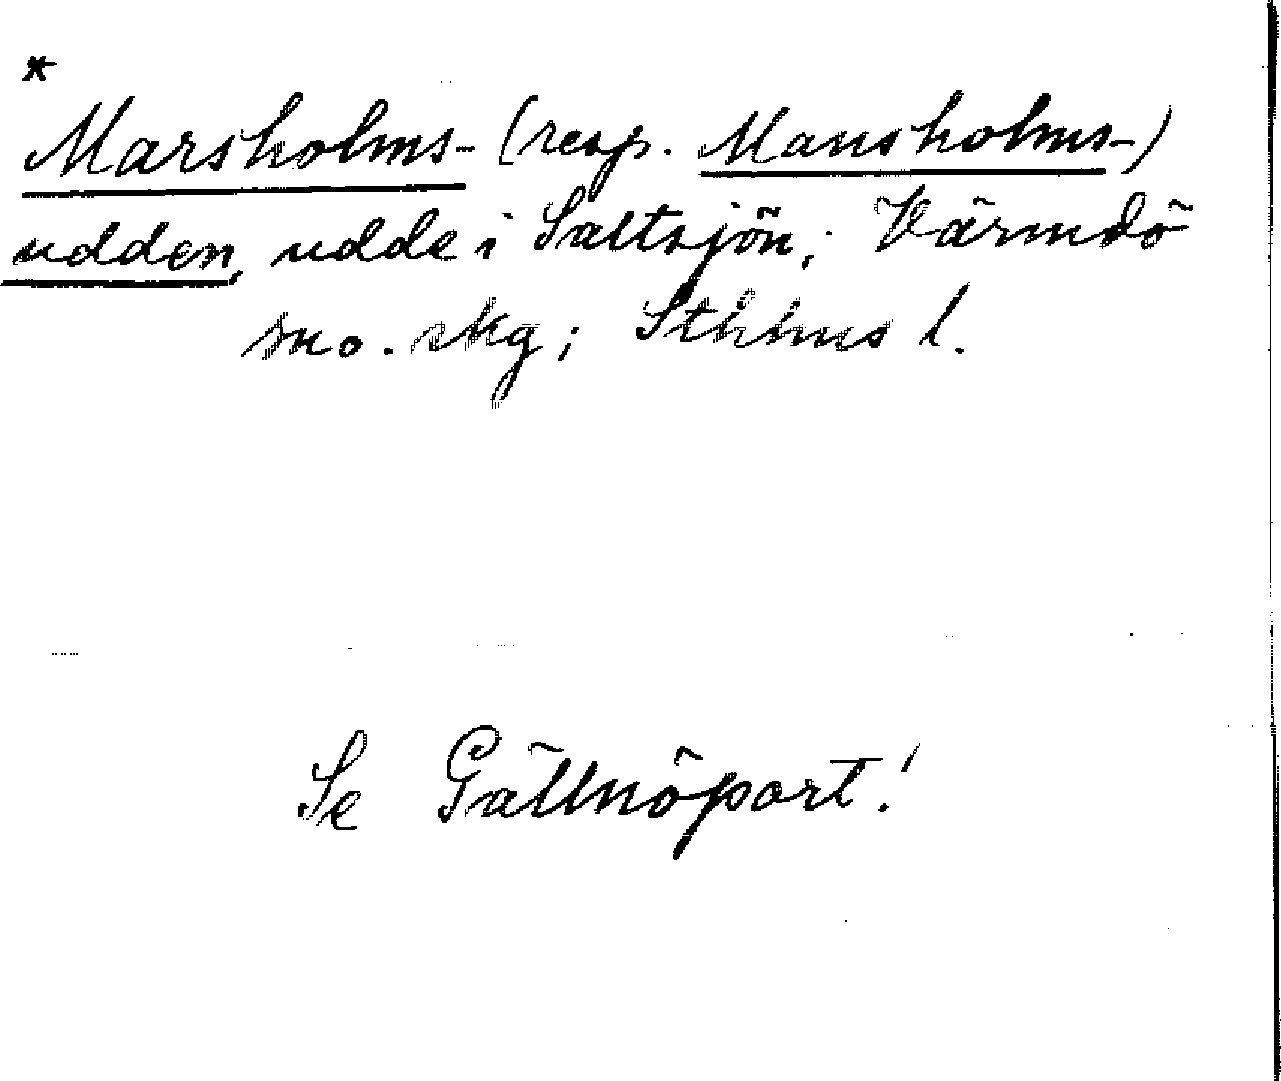 *
Marsholms- (resp. Mansholms-)
udden, udde i Saltsjön, Värmdö
sko. skg; Sthlms l.
Se Gällnöport!